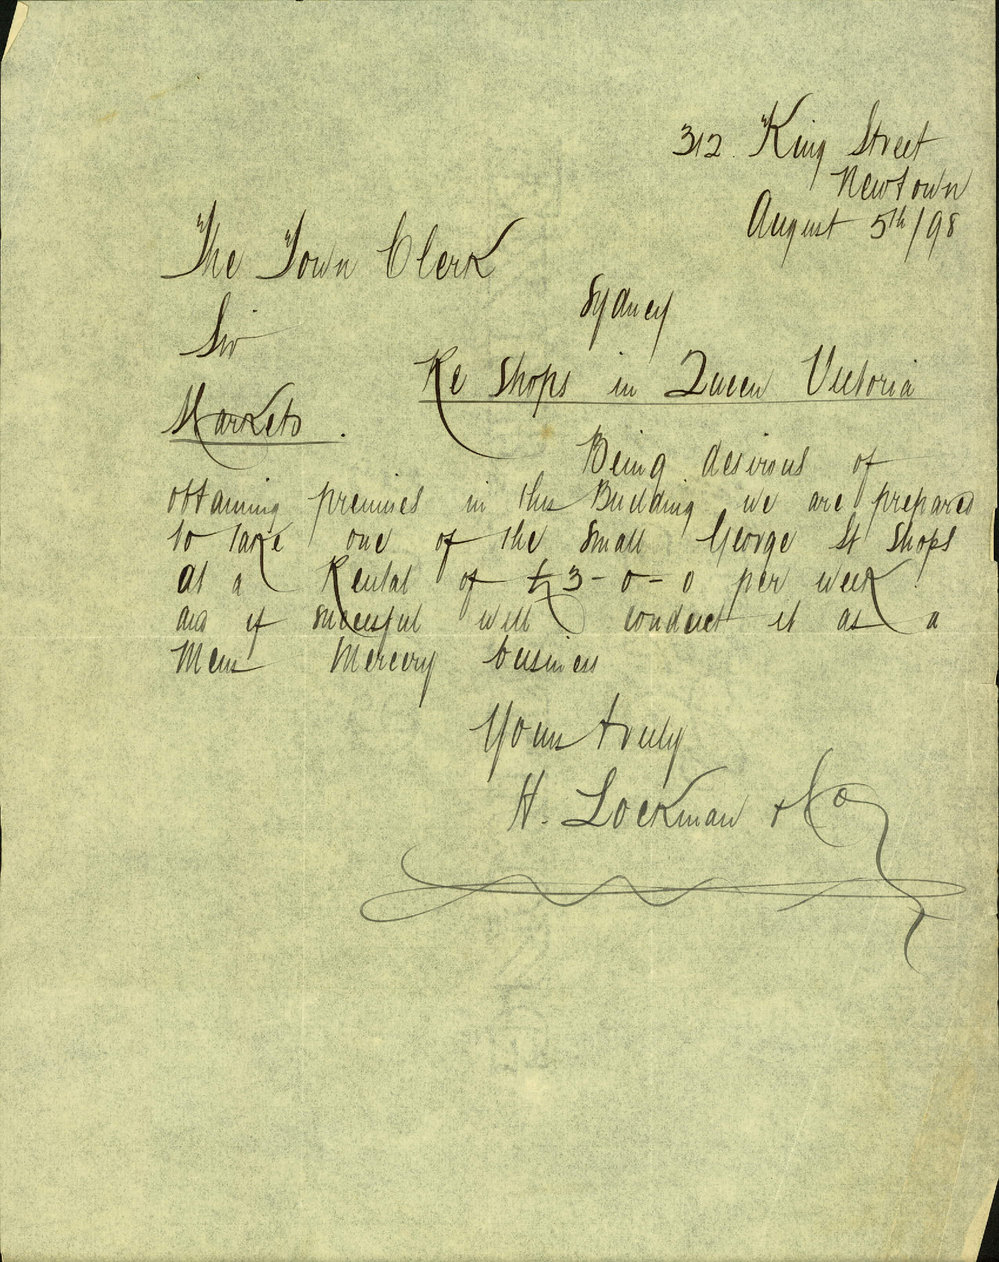 312. King Street
Newtown
August 5th/98
The Town Clerk
Sydney
Sir
Re Shops in Queen Victoria
Markets.
Being desirous of
obtaining premises in this Building we are prepared
to take one of the small George St Shops
at a Rental of £3-0-0 per week
and if successful will conduct it as a
Mens Mercery business
Yours truly
H. Lockman & Co